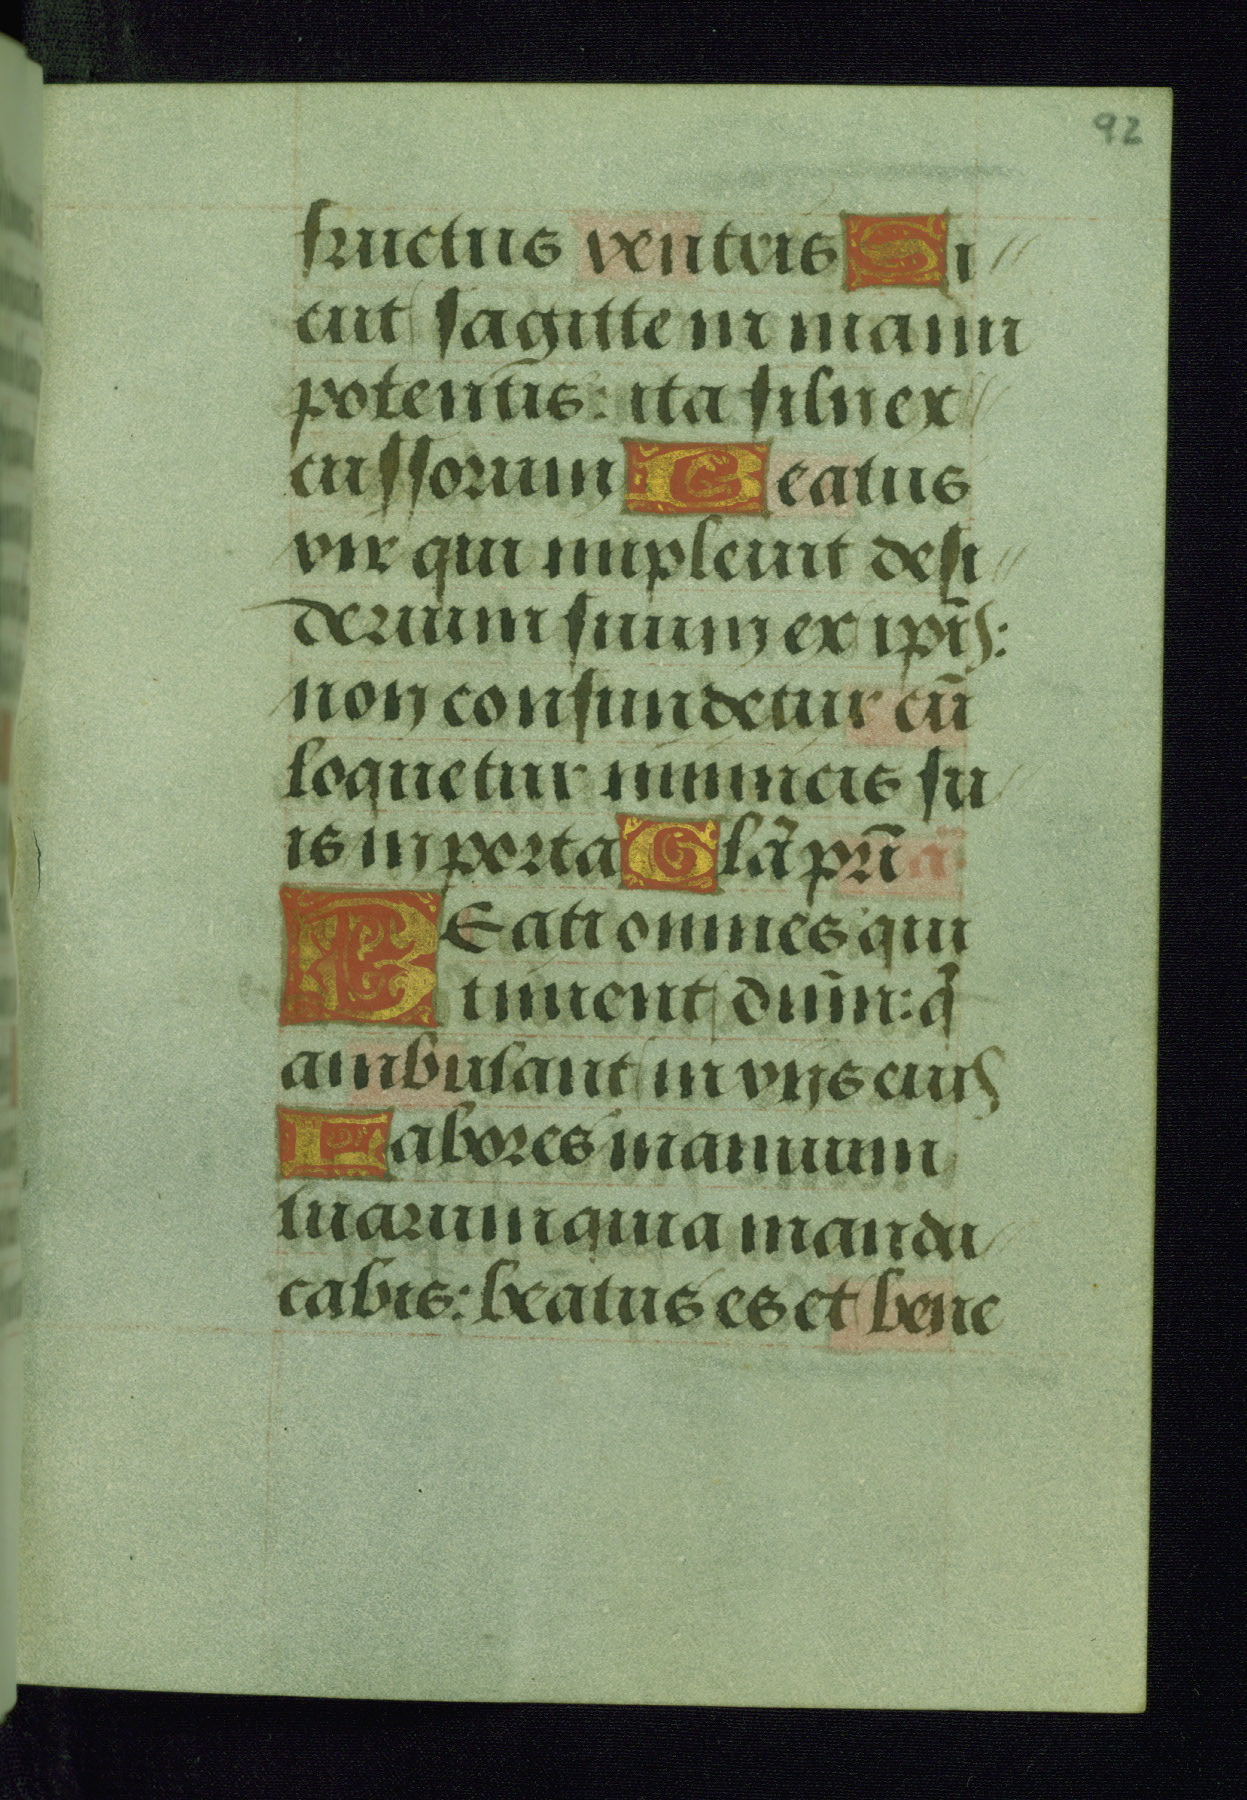 92
fructus ventris Si
cut sagitte in manu
potentis: ita filii ex
cussorum Beatus
vir qui impleuit desi
derium suum ex ipīs:
non confundetur cū
loquetur inimicis su
is in porta Glã prĩ
BEati omnes qui
timent dnm̄: q̃
ambulant in vijs eius
Labores manuum
tuarum quia mandu
cabis: beatus es et bene